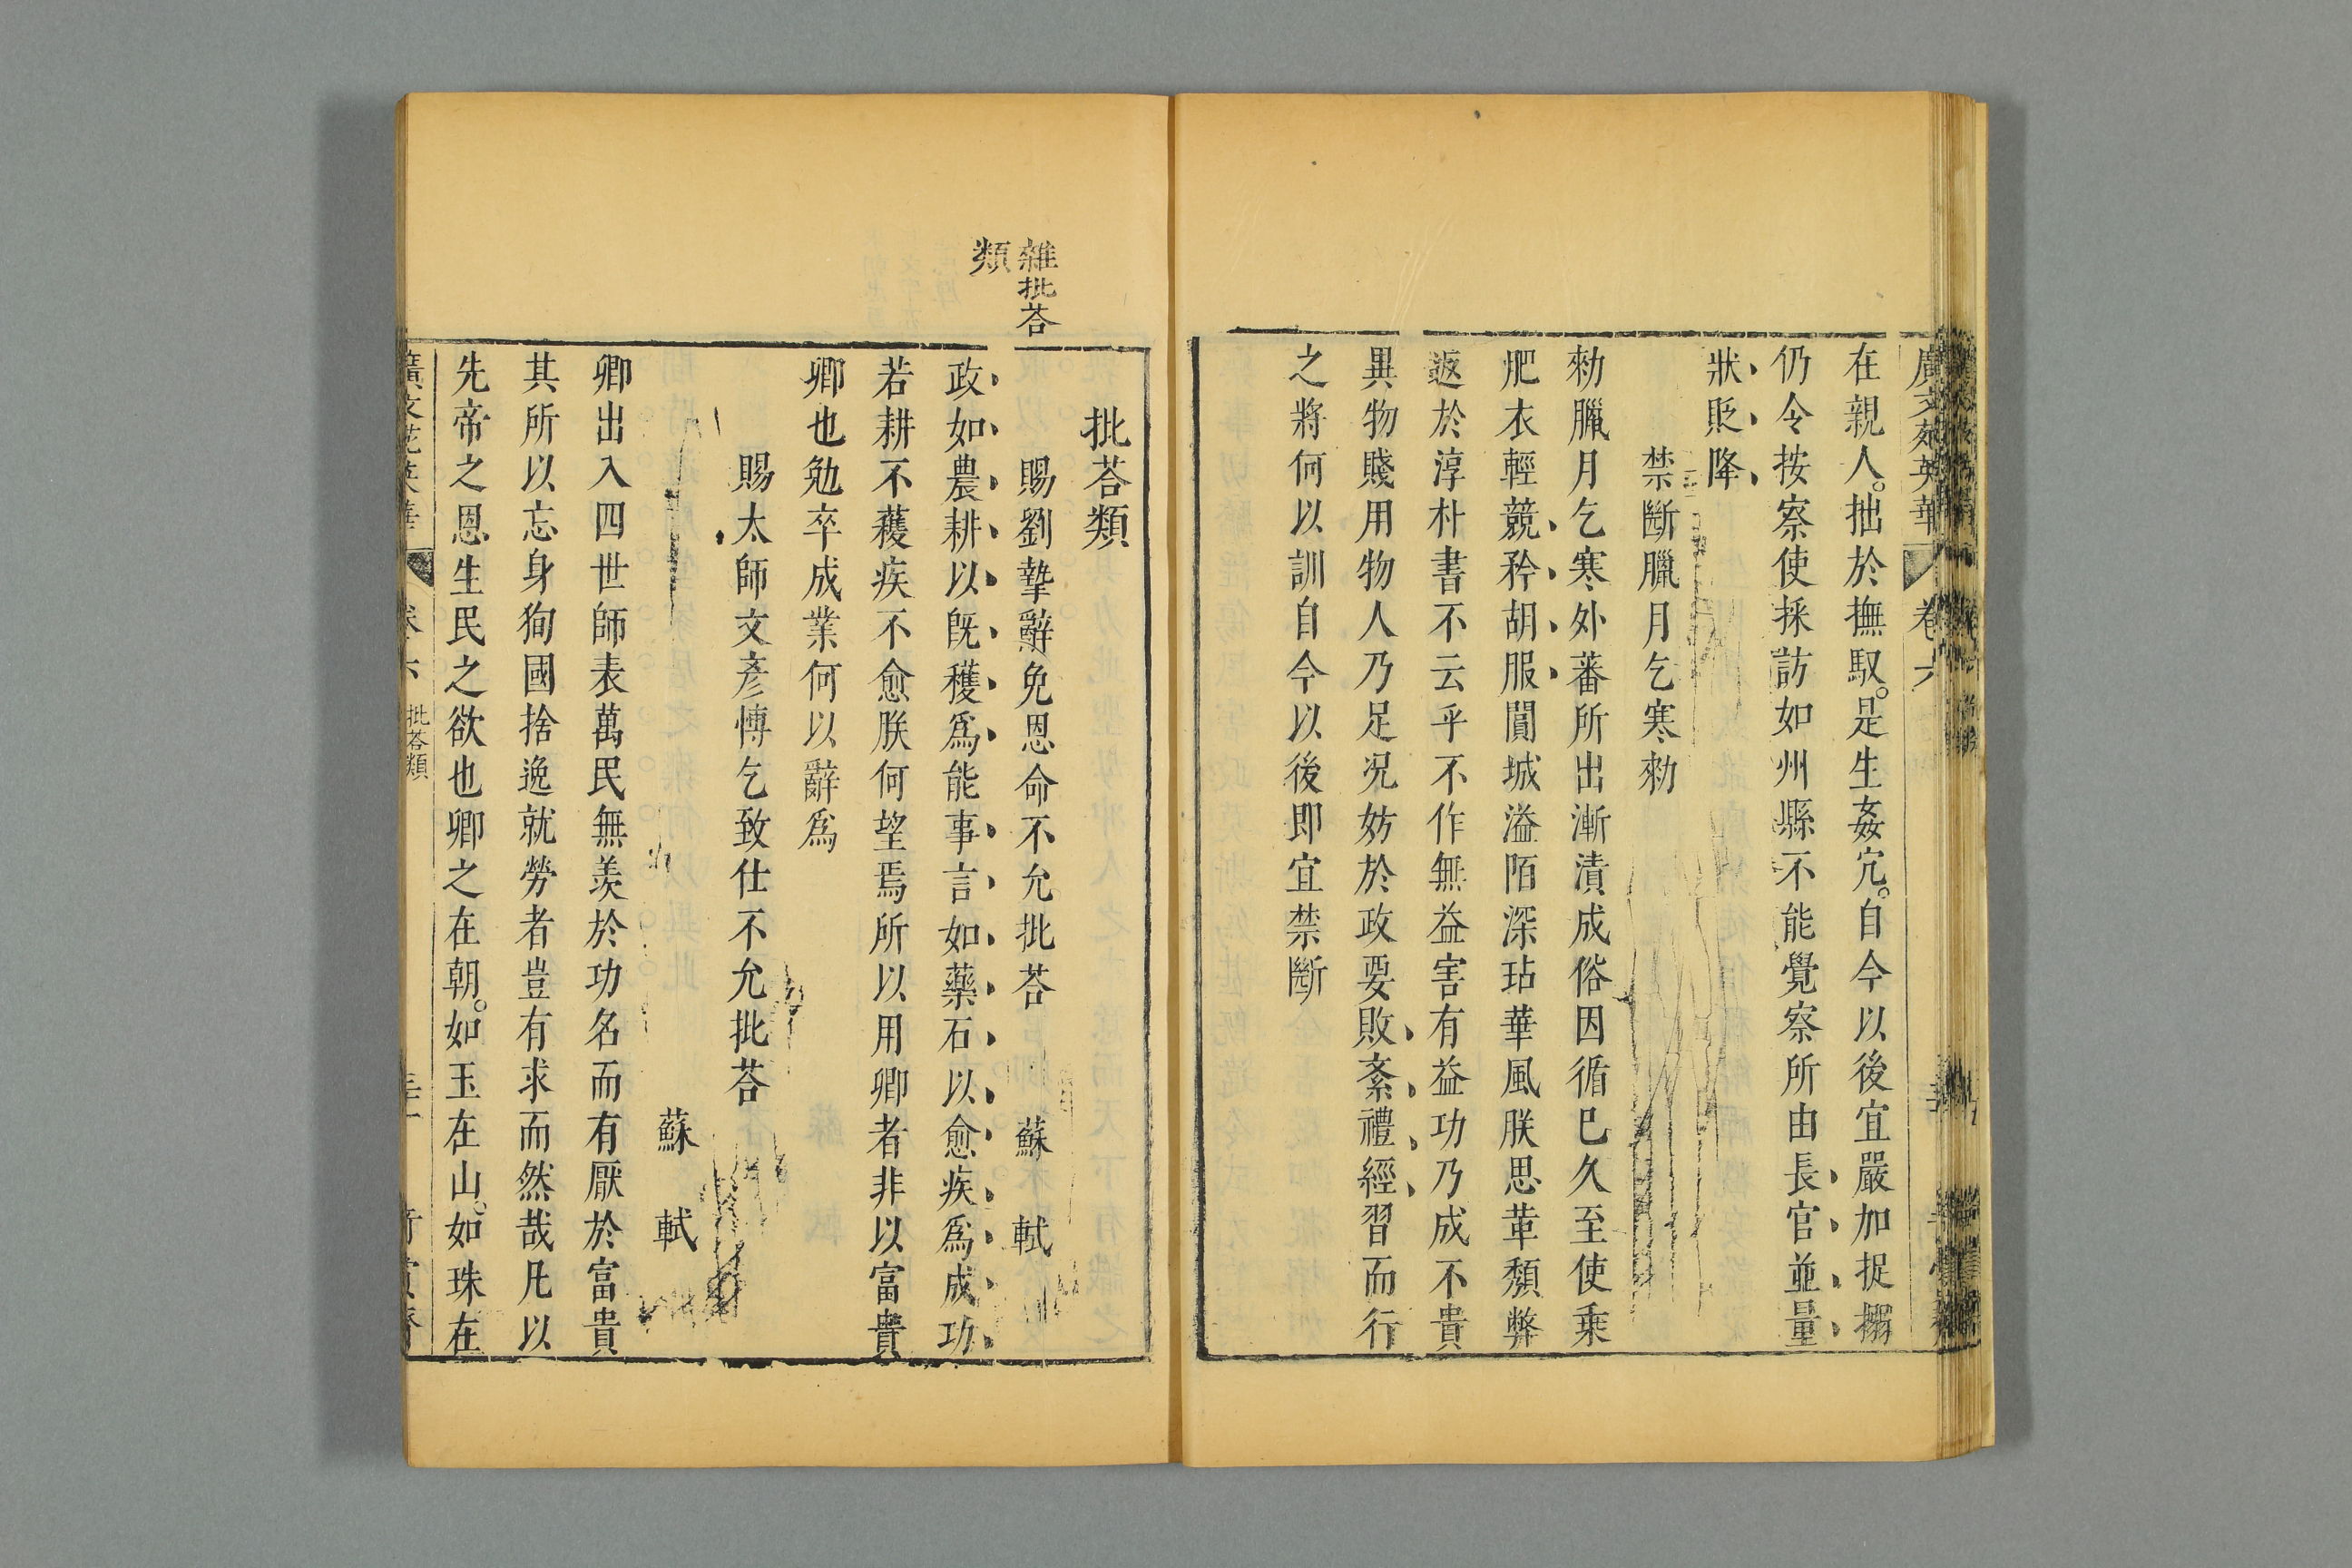 廣文苑英華 卷六
在親人。拙於撫馭。是生姦宄。自今以後宜嚴加捉搦
仍令按察使採訪如州縣不能覺察所由長官並量
狀貶降
禁斷臘月乞寒勑
勑臘月乞寒外蕃所出漸漬成俗因循巳久至使乗
肥衣輕競矜胡服闐城溢陌深玷華風朕思革頽弊
返於淳朴書不云乎不作無益害有益功乃成不貴
異物賤用物人乃足况妨於政要敗紊禮經習而行
之將何以訓自今以後即宜禁斷
雜批荅
類
批荅類
賜劉摯辭免恩命不允批荅 蘇軾
政如農耕以旣穫爲能事言如藥石以愈疾爲成功
若耕不穫疾不愈朕何望焉所以用卿者非以富貴
卿也勉卒成業何以辭爲
賜太師文彥愽乞致仕不允批荅
蘇軾
卿出入四世師表萬民無羨於功名而有厭於富貴
其所以忘身狥國捨逸就勞者豈有求而然哉凡以
先帝之恩生民之欲也卿之在朝。如玉在山。如珠在
廣文苑英華 卷六 批荅類